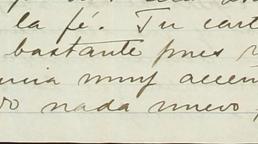 la fé. Tu cart
bastante pues
ncia muy accen
do nada nuevo